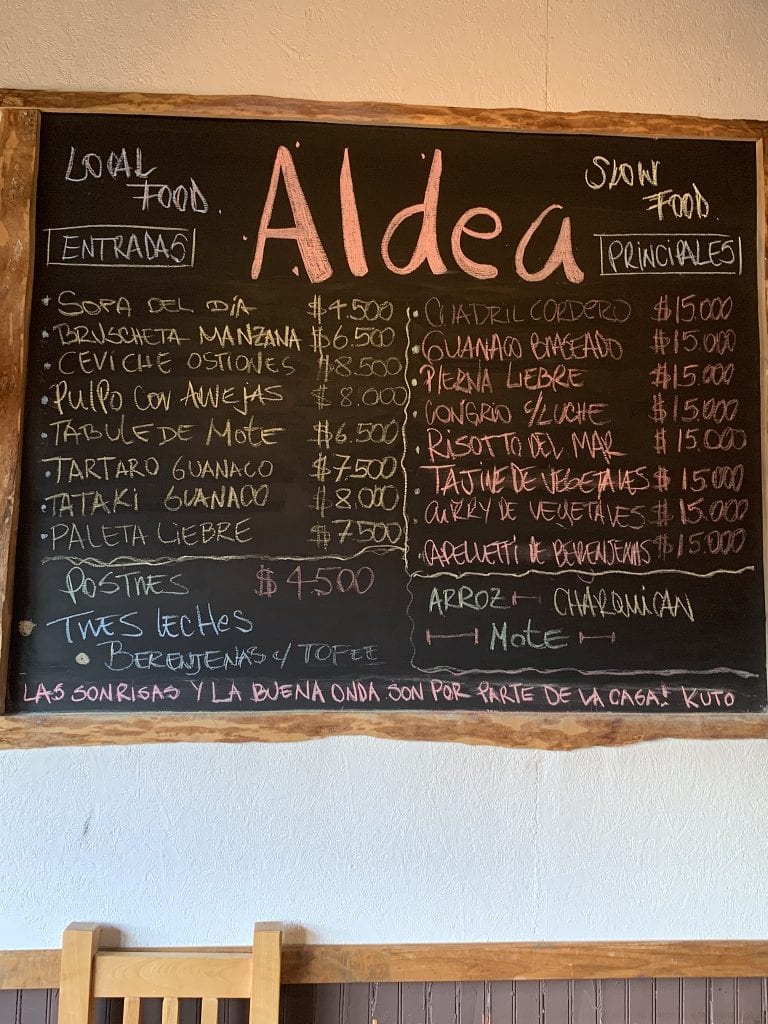 LOCAL FOOD
Aldea
SLOW FOOD
ENTRADAS
SOPA DEL DÍA $4.500
BRUSCHETA MANZANA $6.500
CEVICHE OSTIONES $8.500
PULPO CON ALMEJAS $8.000
TABULE DE MOTE $6.500
TARTARO GUANACO $7.500
TATAKI GUANACO $8.000
PALETA LIEBRE $7.500
POSTRES $4.500
TRES LECHES
BERENJENAS C/ TOFEE
PRINCIPALES
CUADRIL CORDERO $15.000
GUANACO BRASEADO $15.000
PIERNA LIEBRE $15.000
CONGRIO C/LUCHE $15.000
RISOTTO DEL MAR $15.000
TAJINE DE VEGETALES $15.000
CURRY DE VEGETALES $15.000
CAPELLETTI DE BERENJENAS $15.000
ARROZ CHARQUICAN
MOTE
LAS SONRISAS Y LA BUENA ONDA SON POR PARTE DE LA CASA! KUTO